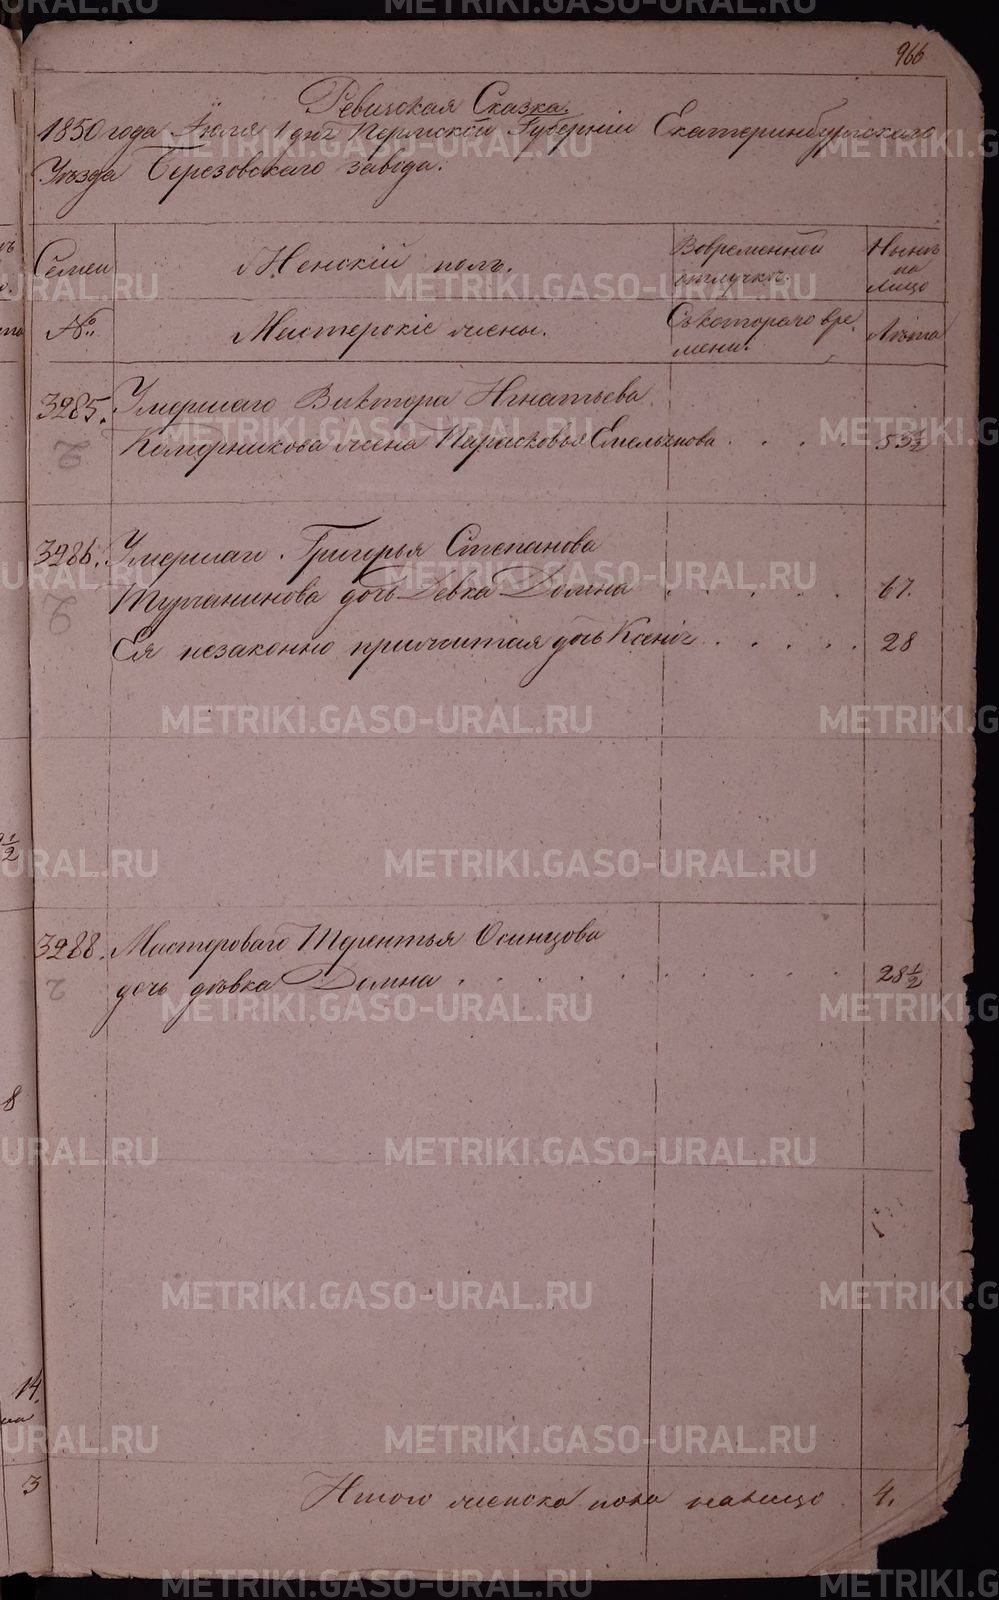 966
Ревизская Сказка.
1850 года Июля 1 дня Пермской Губернии Екатеринбургскаго
Уезда Березовскаго завода.
Семеи
Женскій полъ.
Вовременной отлучкѣ.
Нынѣ на лицо
№.
Мастерскіе жены.
Съкотораго вре
мени.
Лѣта
3285. Умершаго Виктора Игнатьева
жена Парасковья Емельянова . . . . 53½
3286. Умершаго Григорья Степанова
Турчанинова дочь Девка Домна . . . . . 67.
Ея незаконно прижитая дочь Ксенія . . . . . 28
3288. Мастероваго Терентья Осинцова
дочь девка Домна . . . . . . . . . . 28½
Итого женска пола налицо 4.
½
8
14.
3
METRIKI.GASO-URAL.RU